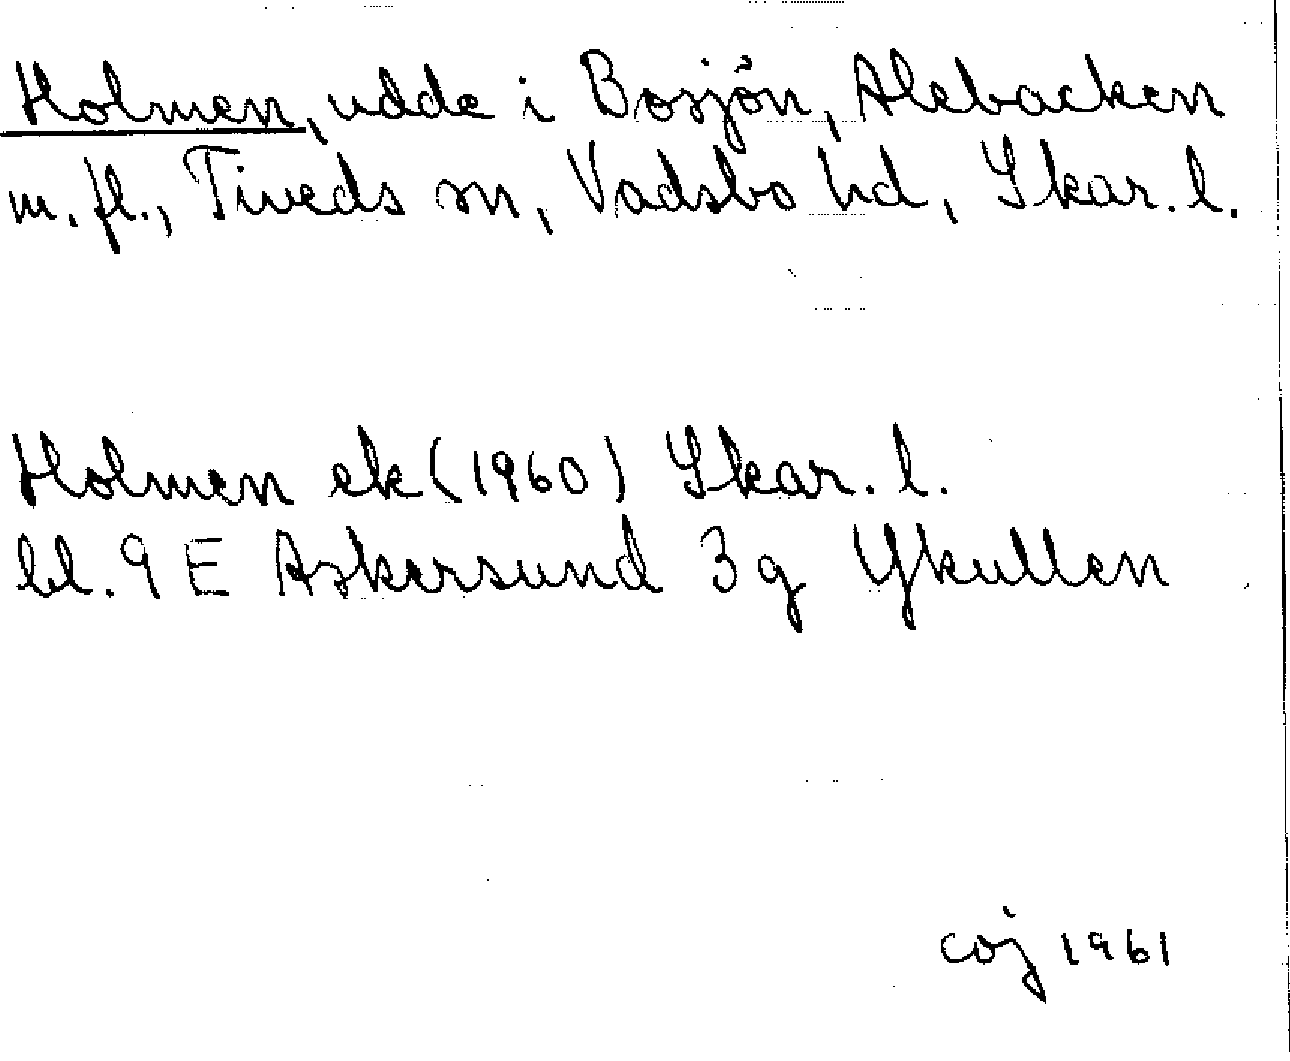 Holmen, udde i Bosjön, Alebacken
m.fl., Tiveds sn, Vadsbo hd, Skar. l.
Holmen ek (1960) Skar. l.
bl. 9 E Askersund 3g Ykullen
coj 1961